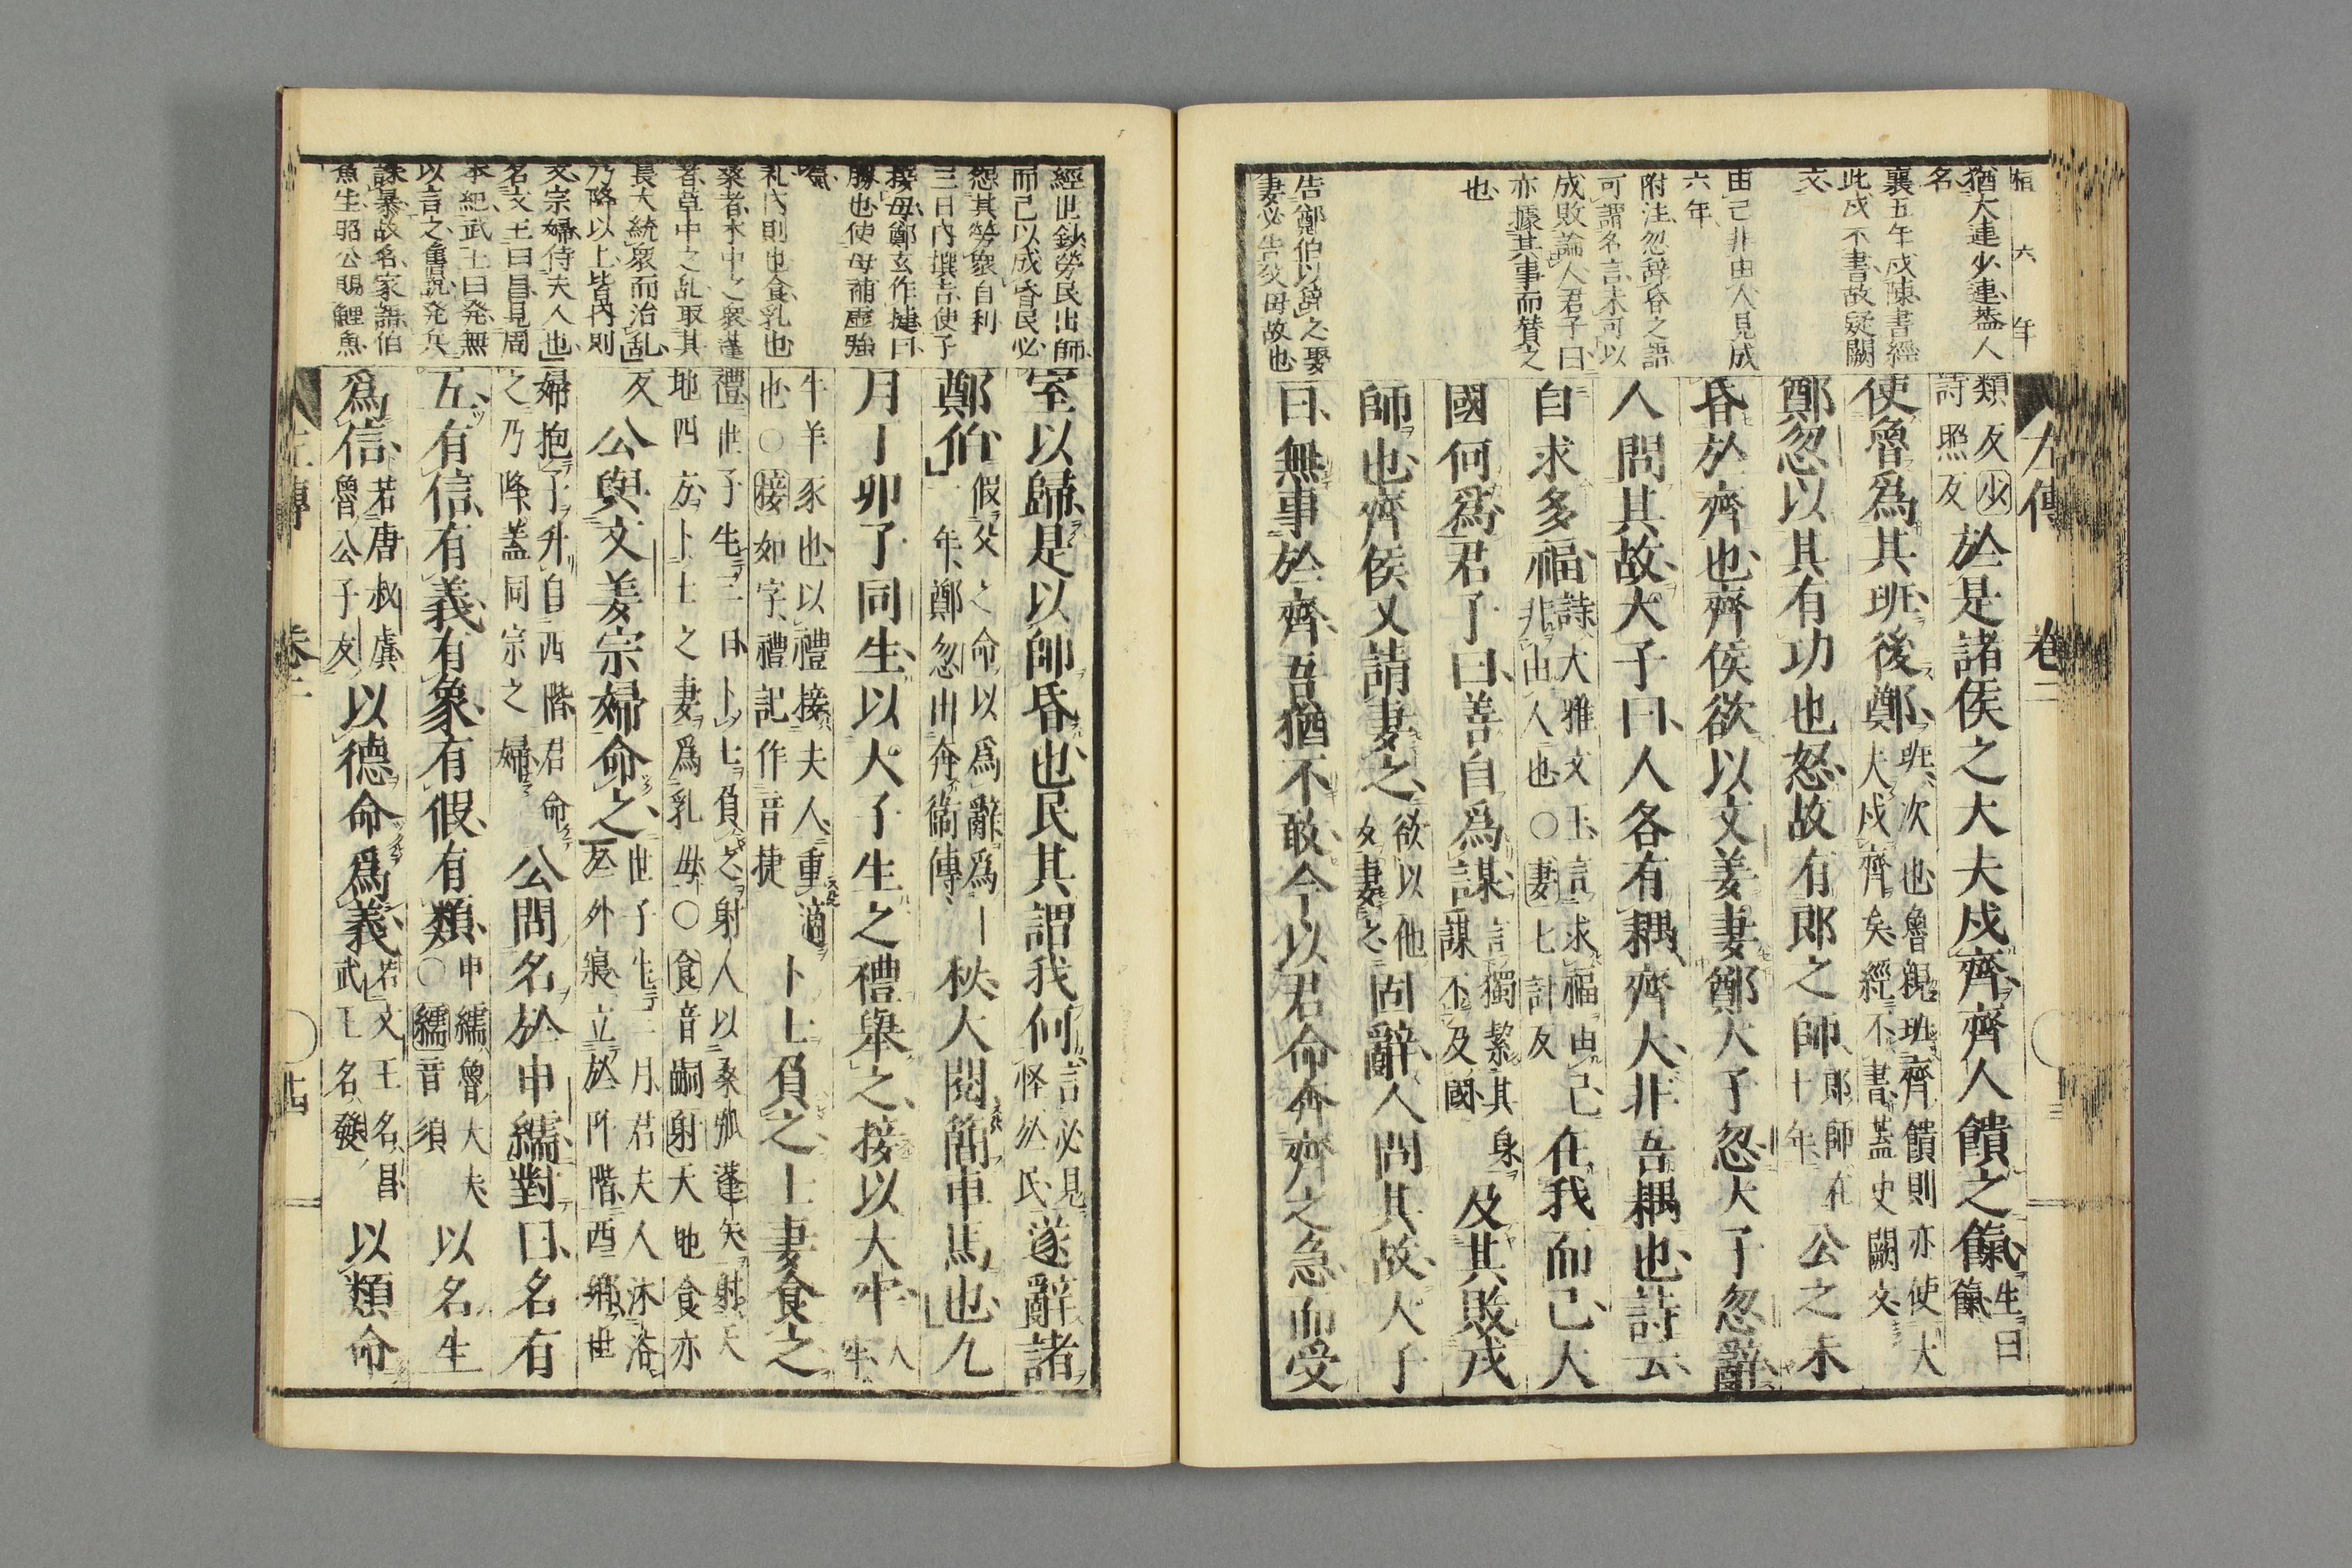 桓六年
猶大連少連蓋人
名
襄五年戍陳書經
此戍不書故疑闕
文
由己非由人見成
六年
附注忽辭昏之語
可謂名言未可以
成敗論人君子曰
亦據其事而賛之
也
告鄭伯以辭之娶
妻必告父母故也
左傳 卷二
類反少
詩照反
於是諸侯之大夫戍齊齊人饋之餼
生曰
餼
使魯爲其班後鄭
班次也魯親班齊饋則亦使大
夫戍齊矣經不書蓋史闕文
鄭忽以其有功也怒故有郎之師
郎師在
十年
公之未
昏於齊也齊侯欲以文姜妻鄭大子忽大子忽辭
人問其故大子曰人各有耦齊大非吾耦也詩云
自求多福
詩大雅文王言求福由己
非由人也○妻七計反
在我而已大
國何爲君子曰善自爲謀
言獨絜其身
謀不及國
及其敗戎
師也齊侯又請妻之
欲以他
女妻之
固辭人問其故大子
曰無事於齊吾猶不敢今以君命奔齊之急而受
經世鈔勞民出師
而己以成昏民必
怨其勞衆自利
三日內撰吉使子
接母鄭玄作捷曰
勝也使母補虛強
氣
礼內則也食乳也
桑者木中之衆蓬
者草中之乱取其
長大統衆而治乱
乃降以上皆內則
文宗婦侍夫人也
名文王曰昌見周
本紀武王曰発無
以言之重説発兵
誅暴故名家語伯
魚生昭公賜鯉魚
室以歸是以師昏也民其謂我何
言必見
怪於民
遂辭諸
鄭伯
假父之命以爲辭爲十
一年鄭忽出奔衞傳
秋大閱簡車馬也九
月丁卯子同生以大子生之禮舉之接以大牢
大
牢
牛羊豕也以禮接夫人重適
也○接如字禮記作音捷
卜士負之士妻食之
禮世子生三日卜士負之射人以桑弧蓬矢射天
地四方卜士之妻爲乳母○食音嗣射天地食亦
反
公與文姜宗婦命之
世子生三月君夫人沐浴
於外寢立於阼階西鄉世
婦抱子升自西階君命
之乃降蓋同宗之婦
公問名於申繻對曰名有
五有信有義有象有假有類
申繻魯大夫
○繻音須
以名生
爲信
若唐叔虞
魯公子友
以德命爲義
若文王名昌
武王名發
以類命
左傳 卷二 十四